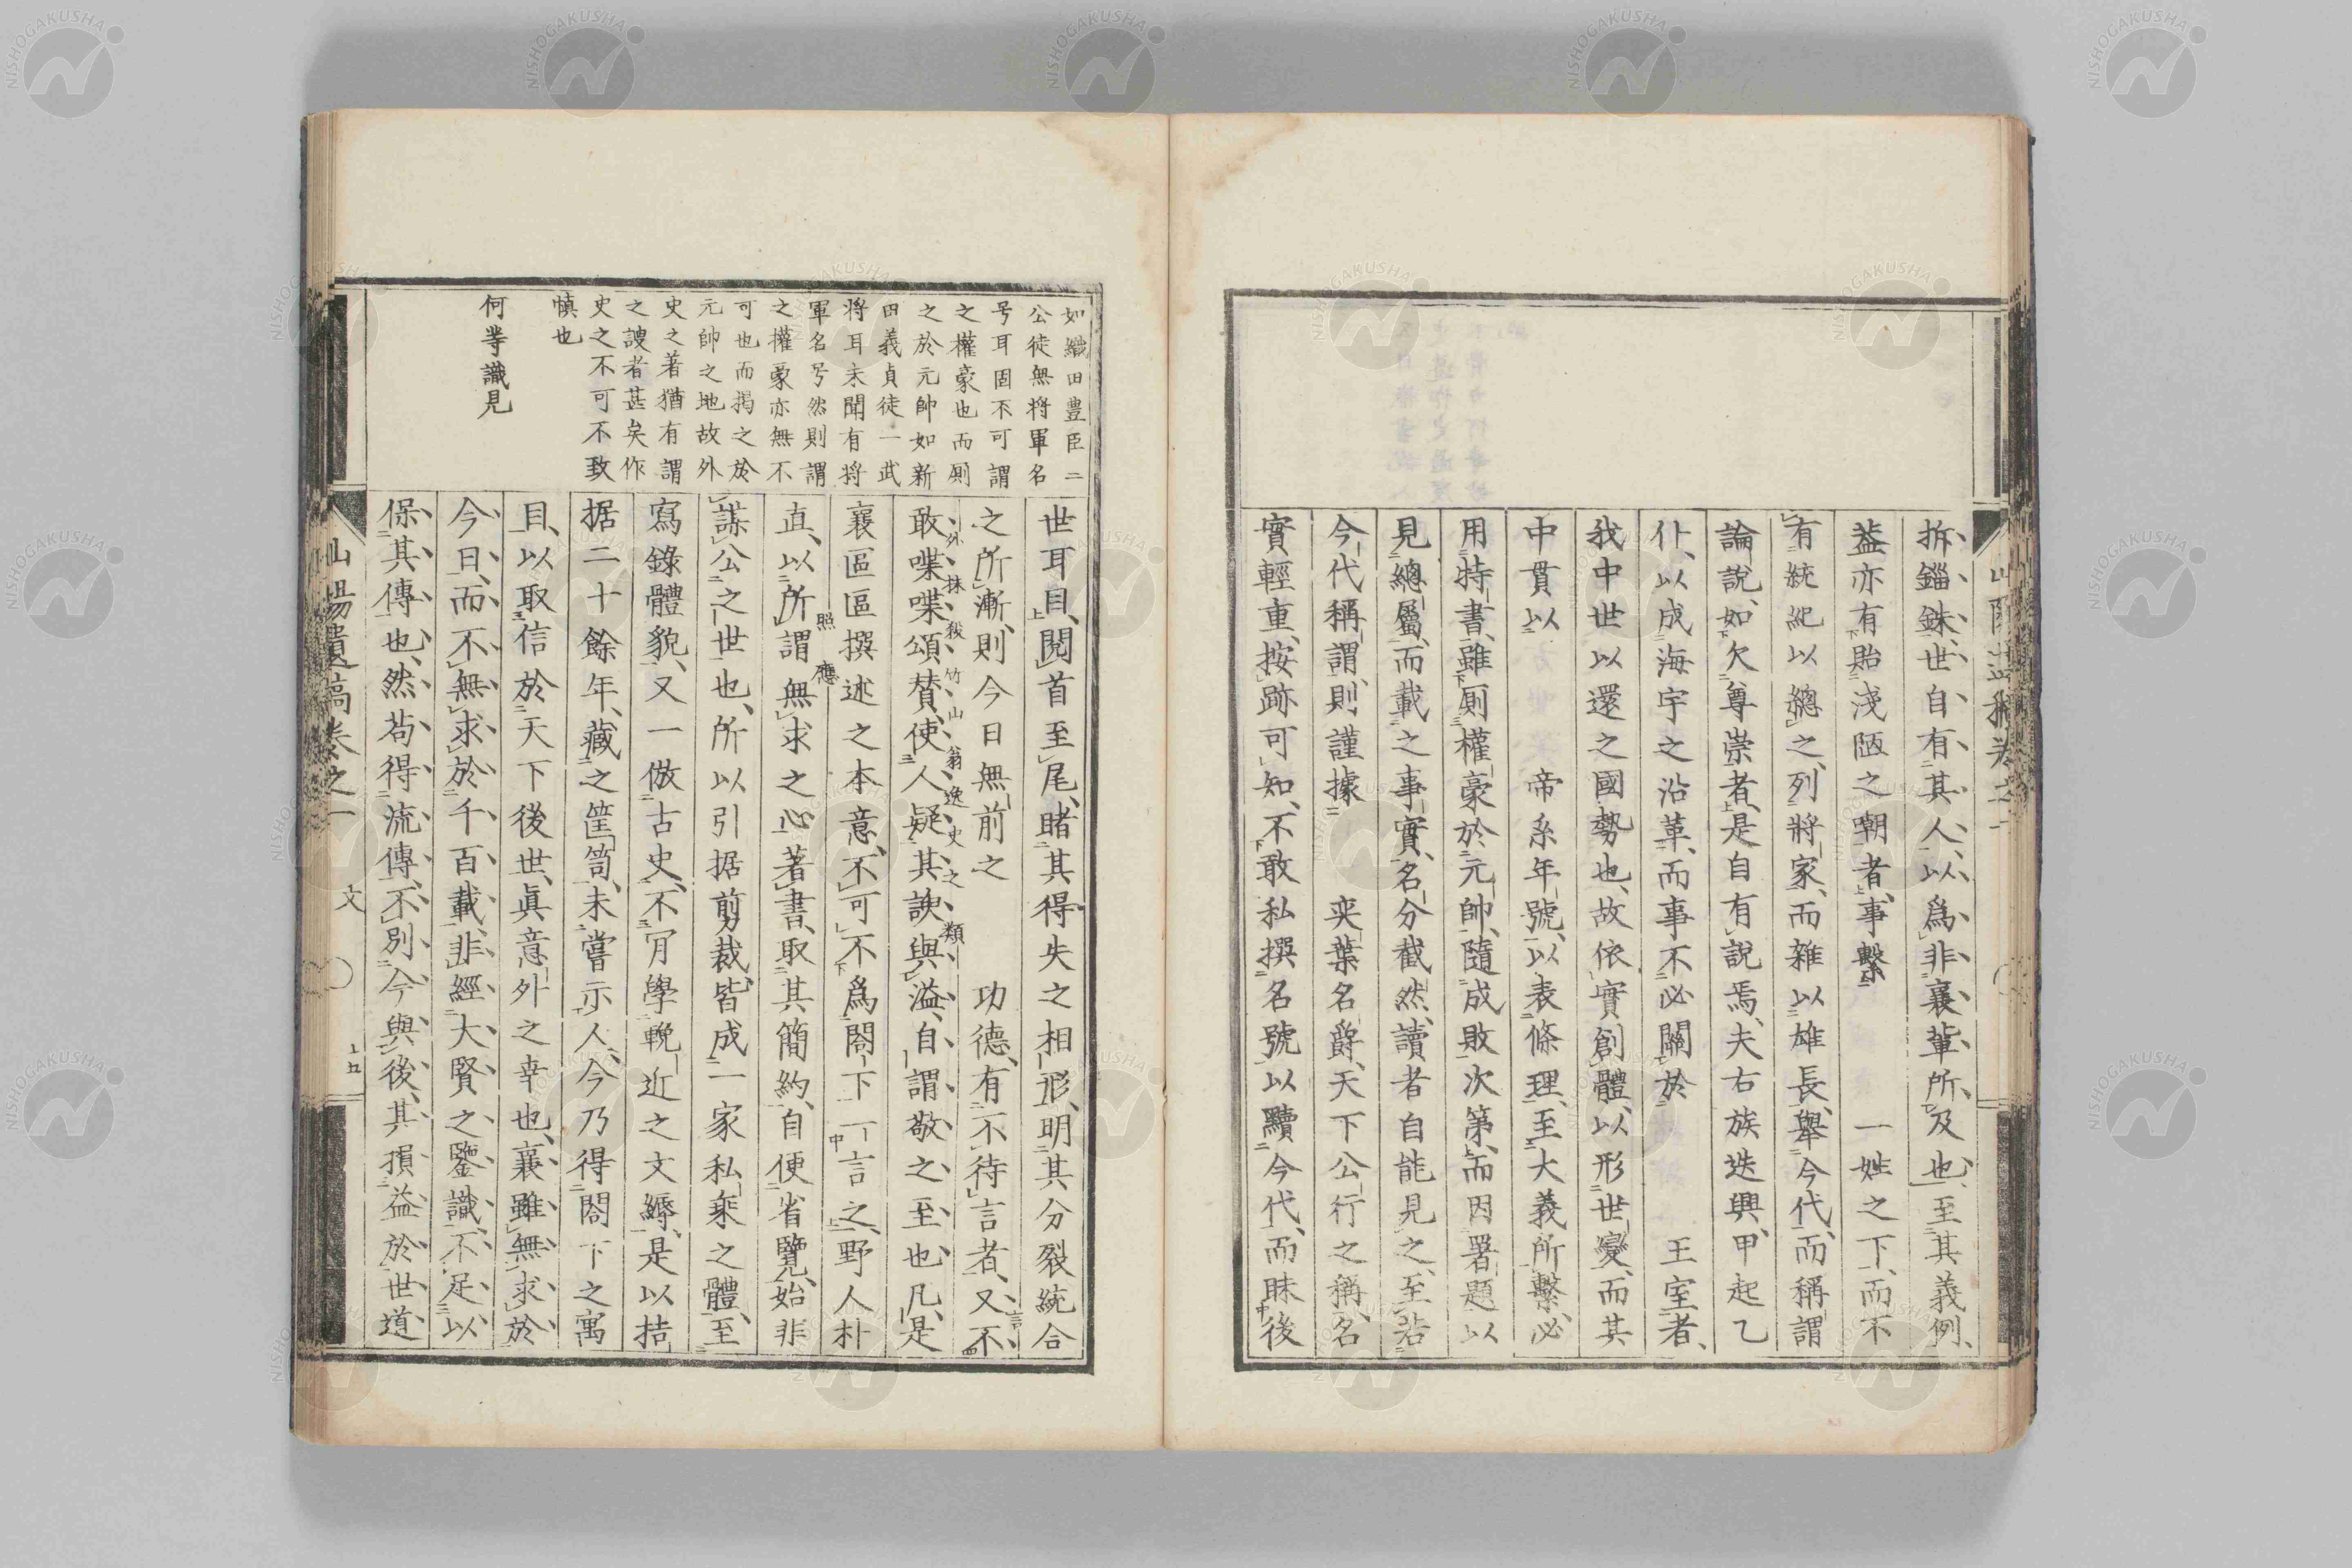 拆錙銖世自有其人以爲非襄輩所及也至其義例
葢亦有貽淺陋之嘲者事繫　一姓之下而不
有統紀以總之列將家而雜以雄長舉今代而稱謂
論說如欠尊崇者是自有說焉夫右族迭興甲起乙
仆以成海宇之沿革而事不必關於　王室者
我中世以還之國勢也故依實創體以形世變而其
中貫以　帝系年號以表條理至大義所繫必
用特書雖厠權豪於元帥隨成敗次第而因署題以
見總屬而載之事實名分截然讀者自能見之至若
今代稱謂則謹據　奕葉名爵天下公行之稱名
實輕重按跡可知不敢私撰名號以黷今代而昧後
如織田豊臣二
公徒無將軍名
号耳固不可謂
之權豪也而厠
之於元帥如新
田義貞徒一武
將耳未聞有將
軍名号然則謂
之權豪亦無不
可也而揭之於
元帥之地故外
史之著猶有謂
之謏者甚矣作
史之不可不致
愼也
何等識見
世耳目閱首至尾睹其得失之相形明其分裂統合
之所漸則今日無前之　功德有不待言者又不
言
敢喋喋頌賛使人疑其諛與溢自謂敬之至也凡是
外抹殺竹山翁逸史之類
襄區區撰述之本意不可不爲閤下一言之野人朴
照應
直以所謂無求之心著書取其簡約自便省覽始非
謀公之世也所以引据剪裁皆成一家私乘之體至
寫錄體貌又一倣古史不肎學輓近之文縟是以拮
据二十餘年藏之筐笥未嘗示人今乃得閤下之寓
目以取信於天下後世眞意外之幸也襄雖無求於
今日而不無求於千百載非經大賢之鑒識不足以
保其傳也然苟得流傳不別今與後其損益於世道
山陽遺稿卷之一
文